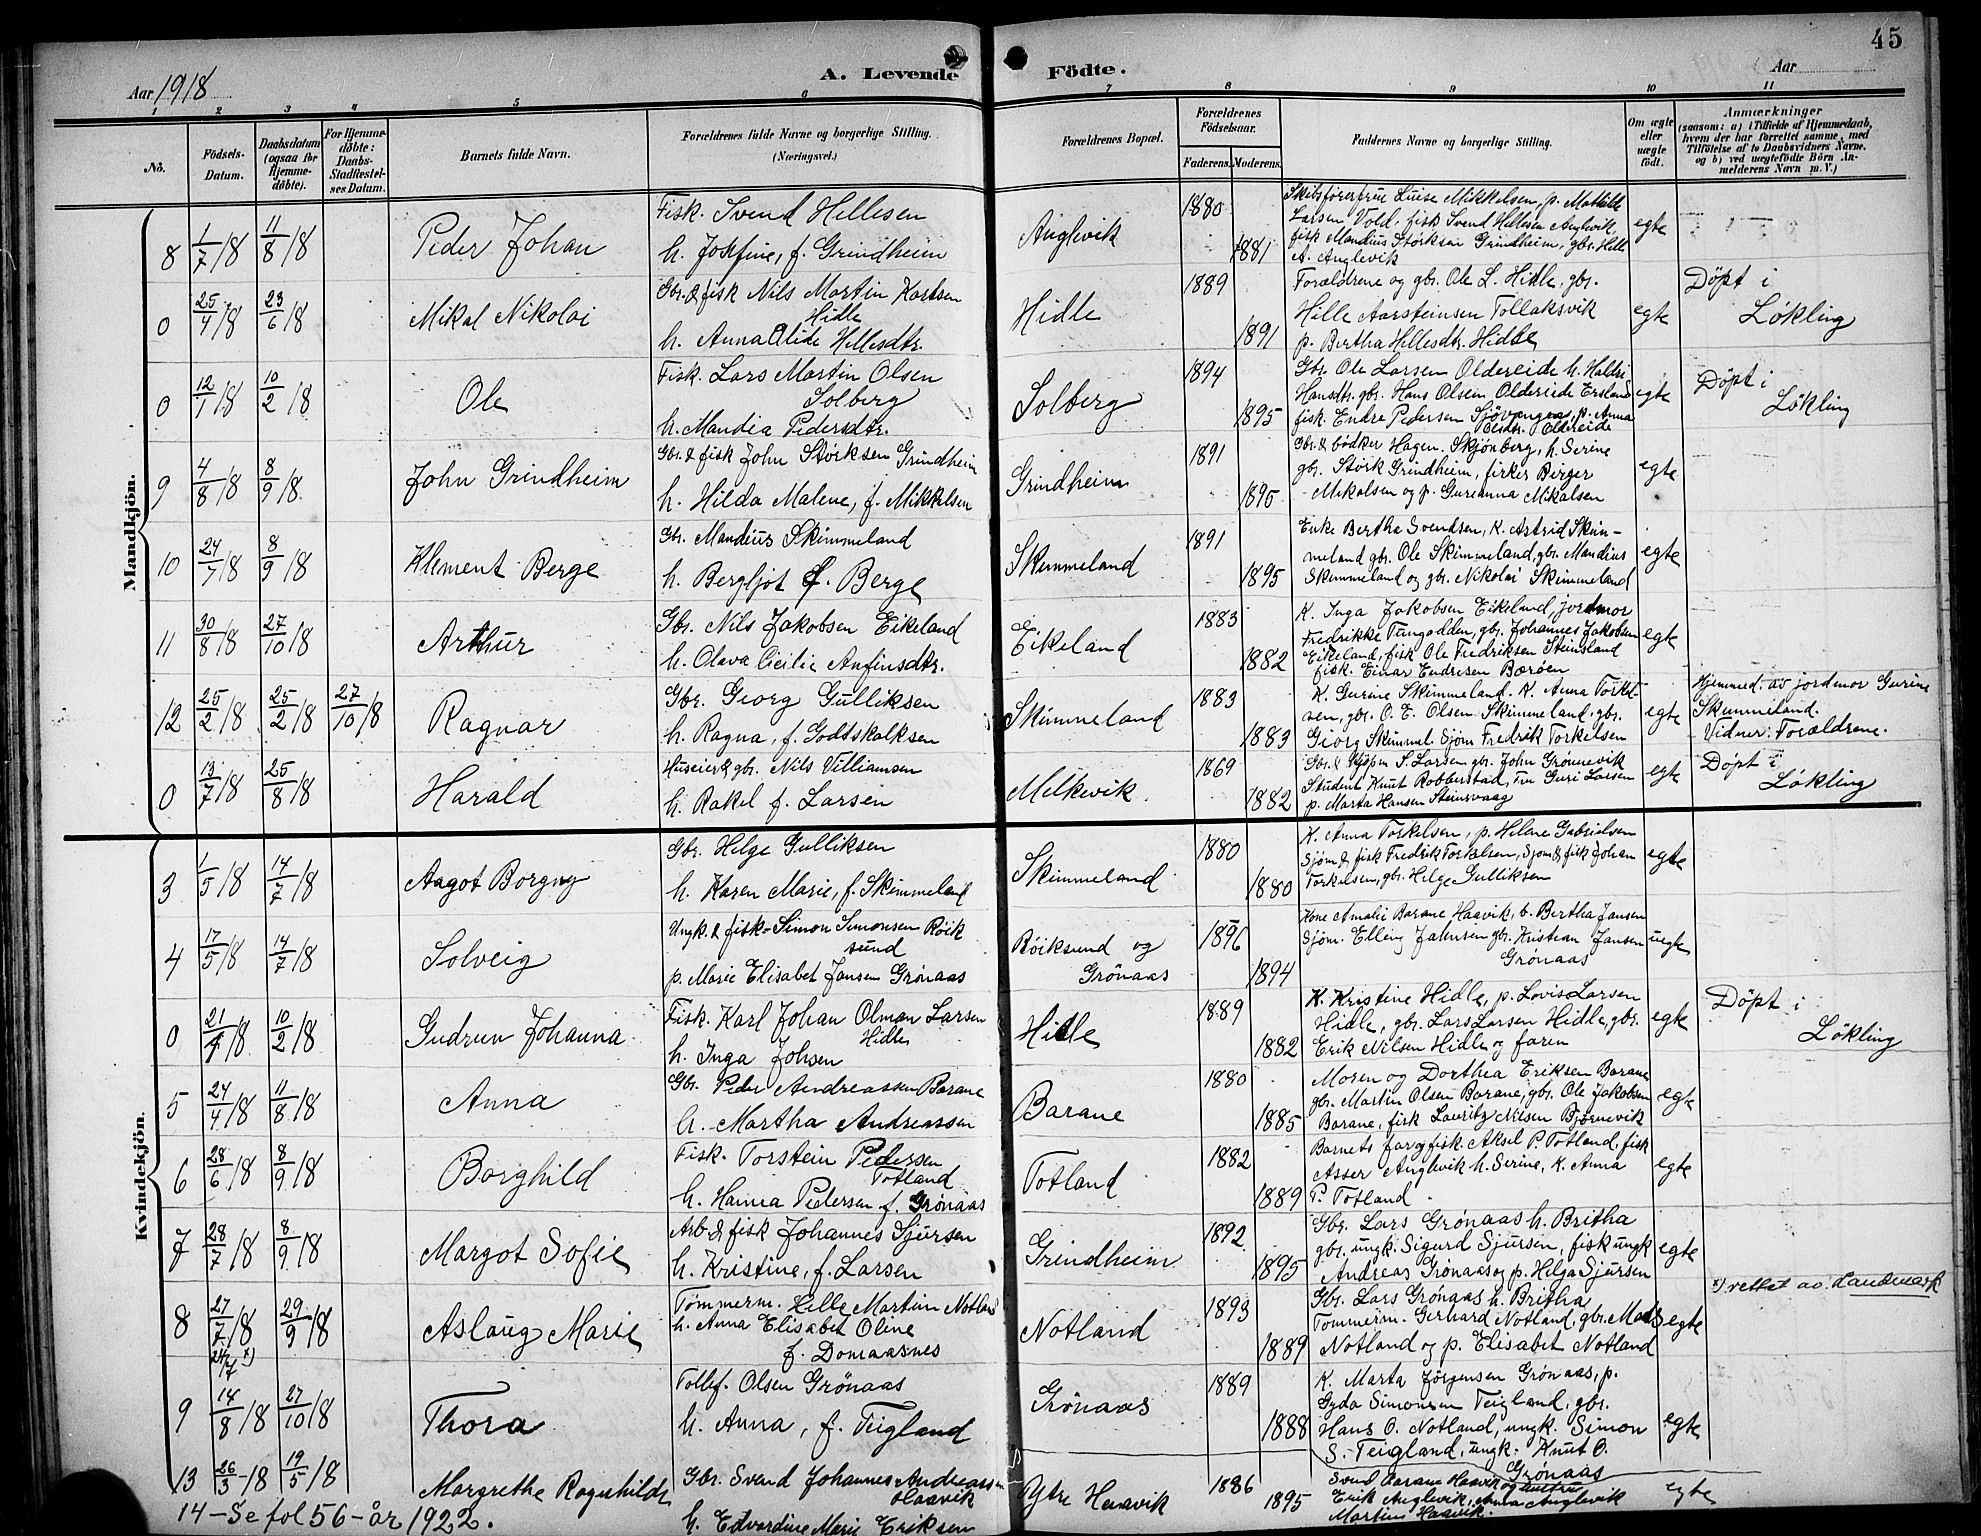 45
Aar 1918
A. Levende Födte.
Aar
1 2 3 4 5 6 7 8 9 10 11
No.
Födsels-Datum.
Daabsdatum (ogsaa for Hjemme-döbte).
For Hjemme-döbte: Daabs-Stadfæstel-ses Datum.
Barnets fulde Navn.
Forældrenes fulde Navne og borgerlige Stilling.
(Næringsvei.)
Forældrenes Bopæl.
Forældrenes Födselsaar.
Faderens. Moderens.
Faddernes Navne og borgerlige Stilling.
Om ægte eller uægte födt.
Anmærkninger
(saasom: a) i Tilfælde af Hjemmedaab,
hvem der har forrettet samme, med
Tilföielse af to Daabsvidners Navne,
og b) ved uægtefödte Börn An-
melderens Navn m. V.)
Mandkjön.
8 1/7/18 11/8/18 Peder Johan
Fisk. Svend Hillesen
h. Josefine, f. Grindheim
Anglevik 1880 1881
Skibsförerfrue Luise Mikkelsen, p. Mathilde
Larsen Vold, fisk Svend Hillesen Anglevik,
fisk Mandius Størksen Grindheim, gbr. Hille
A. Anglevik
egte
0 25/4/18 23/6/18 Mikal Nikolai
Gbr. & fisk Nils Martin Karlsen
Hidle
h. Anna Alide Hillesdtr.
Hidle 1889 1891
Forældrene og gbr. Ole L. Hidle, gbr.
Hille Aarsteinsen Tollaksvik
p. Bertha Hillesdtr. Hidle
egte
Döpt i
Løkling
0 12/1/18 10/2/18 Ole
Fisk. Lars Martin Olsen
Solberg
h. Mandia Pedersdtr.
Solberg 1894 1895
Gbr. Ole Larsen Oldereide h. Haldri
Hansdtr. gbr. Hans Olsen Oldereide Ersland
fisk. Endre Pedersen Sjövangen, p. Anna
Olsdtr. Oldereide
egte
Döpt i
Løkling
9 4/8/18 8/9/18 John Grindheim
Gbr. & fisk John Størksen Grindheim
h. Hilda Malene, f. Mikkelsen
Grindheim 1891 1895
Gbr. & bødker Hagen Skjønberg, h. Serine
gbr. Størk Grindheim, fisker Berger
Mikalsen og p. Gureanna Mikalsen
egte
10 24/7/18 8/9/18 Klement Berge
Gbr. Mandius Skimmeland
h. Bergljot f. Berge
Skimmeland 1891 1895
Enke Bertha Svendsen, K. Astrid Skim-
meland gbr. Ole Skimmeland, gbr. Mandius
Skimmeland og gbr. Nikolai Skimmeland
egte
11 30/8/18 27/10/18 Arthur
Gbr. Nils Jakobsen Eikeland
h. Olava Cicilie Anfinsdtr.
Eikeland 1883 1882
K. Inga Jakobsen Eikeland, jordmor
Fredrikke Tungodden, gbr. Johannes Jakobsen
Eikeland, fisk Ole Fredriksen Steinsland
fisk. Einar Endresen Barøen
egte
12 25/2/18 25/2/18 27/10/18 Ragnar
Gbr. Georg Gulliksen
h. Ragna, f. Godtskalksen
Skimmeland 1883 1883
K. Gurine Skimmeland. K. Anna Torkel-
sen, gbr. O. E. Olsen Skimmeland, gbr.
Georg Skimmel. Sjøm Fredrik Torkelsen
egte
Hjemmed. av jordmor Gurine
Skimmeland.
Vidner: Forældrene.
0 13/7/18 25/8/18 Harald
Huseier & gbr. Nils Villiamsen
h. Rakel f. Larsen
Melkevik. 1869 1882
S. Larsen gbr. John Grønnevik
Student Knut Robberstad, Fru Guri Larsen
p. Marta Hansen Steinsvaag
egte
Döpt i
Løkling
Kvindekjön.
3 1/5/18 14/7/18 Aagot Borgny
Gbr. Helge Gulliksen
h. Karen Marie, f. Skimmeland
Skimmeland 1880 1880
K. Anna Torkelsen, p. Helene Gabrielsen
Sjöm & fisk Fredrik Torkelsen, Sjöm & fisk Johan
Torkelsen, gbr. Helge Gulliksen
egte
4 17/5/18 14/7/18 Solveig
Ungk. & fisk. Simon Simonsen Röik
sund
p. Marie Elisabet Jansen Grönaas
Röiksund og
Grönaas
1896 1894
Kone Amalie Barane Haavik, b. Bertha Jansen
Sjöm. Elling Jahnsen gbr. Kristian Jansen
Grönaas
uegte
0 21/1/18 10/2/18 Gudrun Johanna
Fisk. Karl Johan Olman Larsen
Hidle
h. Inga Johsen
Hidle 1889 1882
K. Kristine Hidle, p. Lovise Larsen
Hidle, gbr. Lars Larsen Hidle, gbr.
Erik Nilsen Hidle og faren
egte
Döpt i
Løkling
5 24/4/18 11/8/18 Anna
Gbr. Peder Andreassen Barane
h. Martha Andreassen
Barane 1880 1885
Moren og Dorthea Eriksen Barane
gbr. Martin Olsen Barane, gbr. Ole Jakobsen
Barane, fisk Lauritz Nilsen Bjørnevik
egte
6 28/6/18 8/9/18 Borghild
Fisk. Torstein Pedersen
Totland
h. Hanna Pedersen f. Grönaas
Totland 1882 1889
Barnets far og fisk. Aksel P. Totland, fisk
Asser Anglevik h. Serine, K. Anna
P. Totland
egte
7 28/7/18 8/9/18 Margot Sofie
Arb. & fisk Johannes Sjursen
h. Kristine, f. Larsen
Grindheim 1892 1895
Gbr. Lars Grønaas h. Britha
gbr. ungk. Sigurd Sjursen, fisk ungk
Andreas Grönaas og p. Helga Sjursen
egte
8 27/7/18 29/9/18 Aslaug Marie
24/7 x)
Tömmerm. Hille Martin Notland
h. Anna Elisabet Oline
f. Domaasnes
Notland 1893 1889
Gbr. Lars Grönaas h. Britha
Tommerm. Gerhard Notland, gbr. Mads
Notland og p. Elisabet Notland
egte
x) rettet av. Landmark
9 14/8/18 27/10/18 Thora
Tollef. Olsen Grönaas
h. Anna, f. Teigland
Grönaas 1889 1888
K. Marta Jørgensen Grönaas, p.
Gyda Simonsen Teigland, gbr.
Hans O. Notland, ungk. Simon
S. Teigland, ungk. Knut O.
Grönaas
egte
13 26/3-18 19/5/18 Margrethe Ragnhilds
Gbr. Svend Johannes Andreassen
Haavik
h. Edvardine Marie Eriksen
Ytre Haavik 1886 1895
Svend Barane Haavik og hustru
Erik Anglevik, Anna Anglevik
Martins Haavik.
egte
14 - Se fol 56 - år 1922.